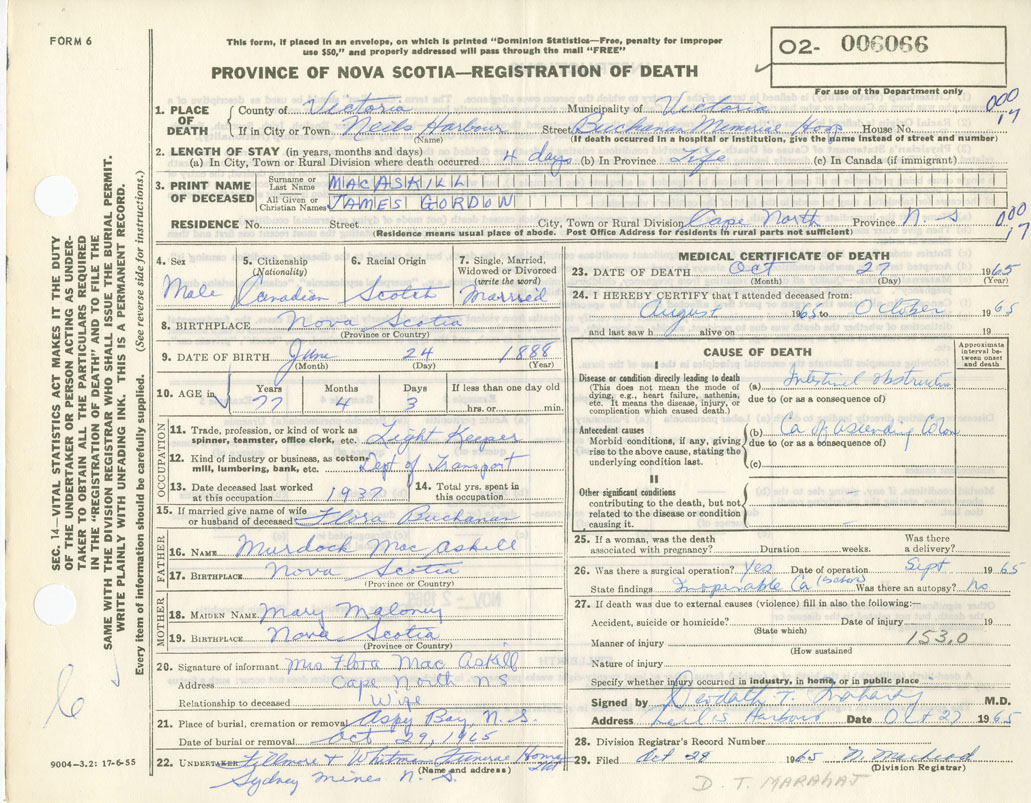 FORM 6
This form, if placed in an envelope, on which is printed "Dominion Statistics—Free, penalty for improper
use $50," and properly addressed will pass through the mail "FREE"
PROVINCE OF NOVA SCOTIA—REGISTRATION OF DEATH
02- 006066
For use of the Department only
000
17
1. PLACE OF DEATH
County of Victoria Municipality of Victoria
If in City or Town Neils Harbour Street Buchanan Memorial Hosp House No.
(Name) (If death occurred in a hospital or institution, give the name instead of street and number)
2. LENGTH OF STAY (in years, months and days)
(a) In City, Town or Rural Division where death occurred 4 days (b) In Province Life (c) In Canada (if immigrant)
3. PRINT NAME OF DECEASED
Surname or Last Name MACASKILL
All Given or Christian Names JAMES GORDON
RESIDENCE No. Street City, Town or Rural Division Cape North Province N. S
(Residence means usual place of abode. Post Office Address for residents in rural parts not sufficient)
000
17
4. Sex Male
5. Citizenship (Nationality) Canadian
6. Racial Origin Scotch
7. Single, Married, Widowed or Divorced (write the word) Married
8. BIRTHPLACE Nova Scotia
(Province or Country)
9. DATE OF BIRTH June 24 1888
(Month) (Day) (Year)
10. AGE in Years 77 Months 4 Days 3 If less than one day old hrs. or min.
OCCUPATION
11. Trade, profession, or kind of work as spinner, teamster, office clerk, etc. Light Keeper
12. Kind of industry or business, as cotton-mill, lumbering, bank, etc. Dept of Transport
13. Date deceased last worked at this occupation 1937
14. Total yrs. spent in this occupation
15. If married give name of wife or husband of deceased Flora Buchanan
FATHER
16. NAME Murdock Mac Askill
17. BIRTHPLACE Nova Scotia
(Province or Country)
MOTHER
18. MAIDEN NAME Mary Maloney
19. BIRTHPLACE Nova Scotia
(Province or Country)
20. Signature of informant Mrs Flora Mac Askill
Address Cape North N S
Relationship to deceased Wife
21. Place of burial, cremation or removal Aspy Bay, N. S.
Date of burial or removal Oct 29, 1965
22. UNDERTAKER Fillmore + Whitman Funeral Home
(Name and address)
Sydney Mines N. S.
MEDICAL CERTIFICATE OF DEATH
23. DATE OF DEATH Oct 27 1965
(Month) (Day) (Year)
24. I HEREBY CERTIFY that I attended deceased from:
August 1965 to October 1965
and last saw h alive on 19
CAUSE OF DEATH
Approximate interval between onset and death
I
Disease or condition directly leading to death
(This does not mean the mode of dying, e.g., heart failure, asthenia, etc. It means the disease, injury, or complication which caused death.)
(a) Intestinal obstruction
due to (or as a consequence of)
Antecedent causes
Morbid conditions, if any, giving rise to the above cause, stating the underlying condition last.
(b) Ca of ascending Colon
due to (or as a consequence of)
(c)
II
Other significant conditions contributing to the death, but not related to the disease or condition causing it.
25. If a woman, was the death associated with pregnancy? Duration weeks. Was there a delivery?
26. Was there a surgical operation? Yes Date of operation Sept 1965
State findings Inoperable Ca Was there an autopsy? No
27. If death was due to external causes (violence) fill in also the following:—
Accident, suicide or homicide? Date of injury 19
(State which)
Manner of injury 153.0
(How sustained)
Nature of injury
Specify whether injury occurred in industry, in home, or in public place
Signed by M.D.
Address Neil's Harbour Date Oct 27 1965
28. Division Registrar's Record Number
29. Filed Oct 29 1965 N. MacLeod
(Division Registrar)
D. T. MARAHAJ
SEC. 14—VITAL STATISTICS ACT MAKES IT THE DUTY
OF THE UNDERTAKER OR PERSON ACTING AS UNDER-
TAKER TO OBTAIN ALL THE PARTICULARS REQUIRED
IN THE "REGISTRATION OF DEATH" AND TO FILE THE
SAME WITH THE DIVISION REGISTRAR WHO SHALL ISSUE THE BURIAL PERMIT.
WRITE PLAINLY WITH UNFADING INK. THIS IS A PERMANENT RECORD.
Every item of information should be carefully supplied. (See reverse side for instructions.)
6
9004-3.2: 17-6-55